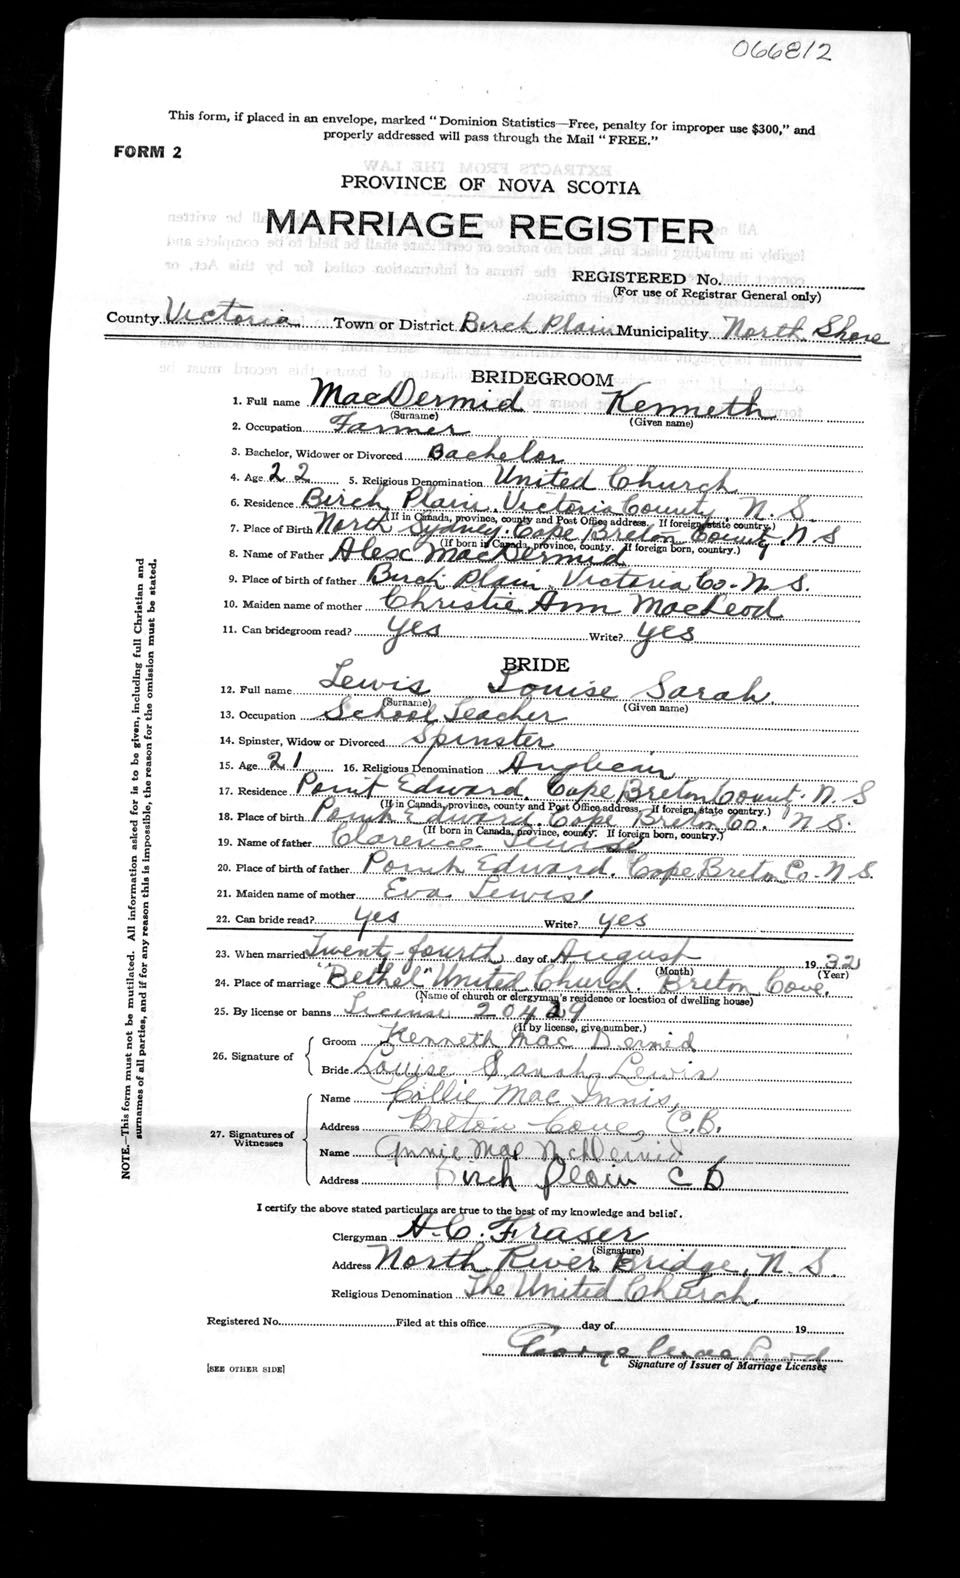 066812
This form, if placed in an envelope, marked "Dominion Statistics—Free, penalty for improper use $300," and
properly addressed will pass through the Mail "FREE."
FORM 2
PROVINCE OF NOVA SCOTIA
MARRIAGE REGISTER
REGISTERED No.
(For use of Registrar General only)
County Victoria Town or District Birch Plain Municipality North Shore
BRIDEGROOM
1. Full name MacDermid Kenneth
(Surname) (Given name)
2. Occupation Farmer
3. Bachelor, Widower or Divorced Bachelor
4. Age 22 5. Religious Denomination United Church
6. Residence Birch Plain, Victoria County, N.S.
(If in Canada, province, county and Post Office address. If foreign, state country.)
7. Place of Birth North Sydney, Cape Breton County, N.S
(If born in Canada, province, county. If foreign born, country.)
8. Name of Father Alex MacDermid
9. Place of birth of father Birch Plain, Victoria Co. N.S.
10. Maiden name of mother Christie Ann MacLeod
11. Can bridegroom read? yes Write? yes
BRIDE
12. Full name Lewis Louise Sarah
(Surname) (Given name)
13. Occupation School Teacher
14. Spinster, Widow or Divorced Spinster
15. Age 21 16. Religious Denomination Anglican
17. Residence Point Edward, Cape Breton Count. N.S
(If in Canada, province, county and Post Office address. If foreign, state country.)
18. Place of birth Point Edward. Cape Breton Co. N.S.
(If born in Canada, province, county. If foreign born, country.)
19. Name of father Clarence Lewis
20. Place of birth of father Point Edward. Cape Breton Co. N.S.
21. Maiden name of mother Eva Lewis
22. Can bride read? yes Write? yes
23. When married Twenty-fourth day of August 1932
(Month) (Year)
24. Place of marriage "Bethel" United Church. Breton Cove.
(Name of church or clergyman's residence or location of dwelling house)
25. By license or banns License 20429
(If by license, give number.)
26. Signature of
Groom Kenneth Mac Dermid
Bride Louise Sarah Lewis
27. Signatures of Witnesses
Name Collie Mac Innis,
Address Breton Cove, C.B.
Name Annie Mae McDermid
Address Birch plain C B
I certify the above stated particulars are true to the best of my knowledge and belief.
Clergyman A.C. Fraser
(Signature)
Address North River Bridge, N.S.
Religious Denomination The United Church.
Registered No. Filed at this office day of 19
George
Signature of Issuer of Marriage Licenses
[SEE OTHER SIDE]
NOTE.—This form must not be mutilated. All information asked for is to be given, including full Christian and
surnames of all parties, and if for any reason this is impossible, the reason for the omission must be stated.